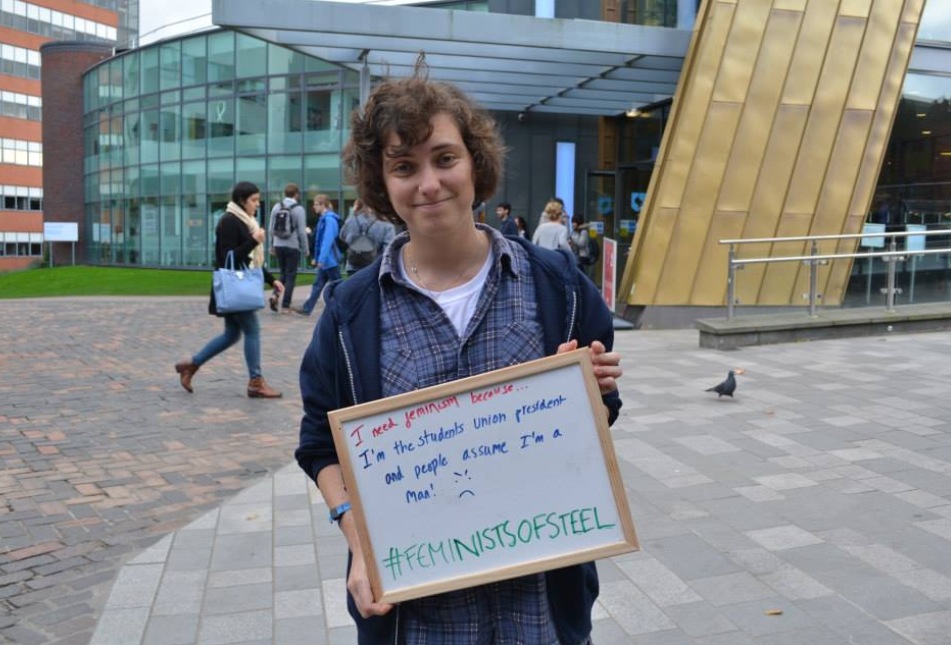 I need feminism because...
I'm the students union president
and people assume I'm a
man!
#FEMINISTSOFSTEEL